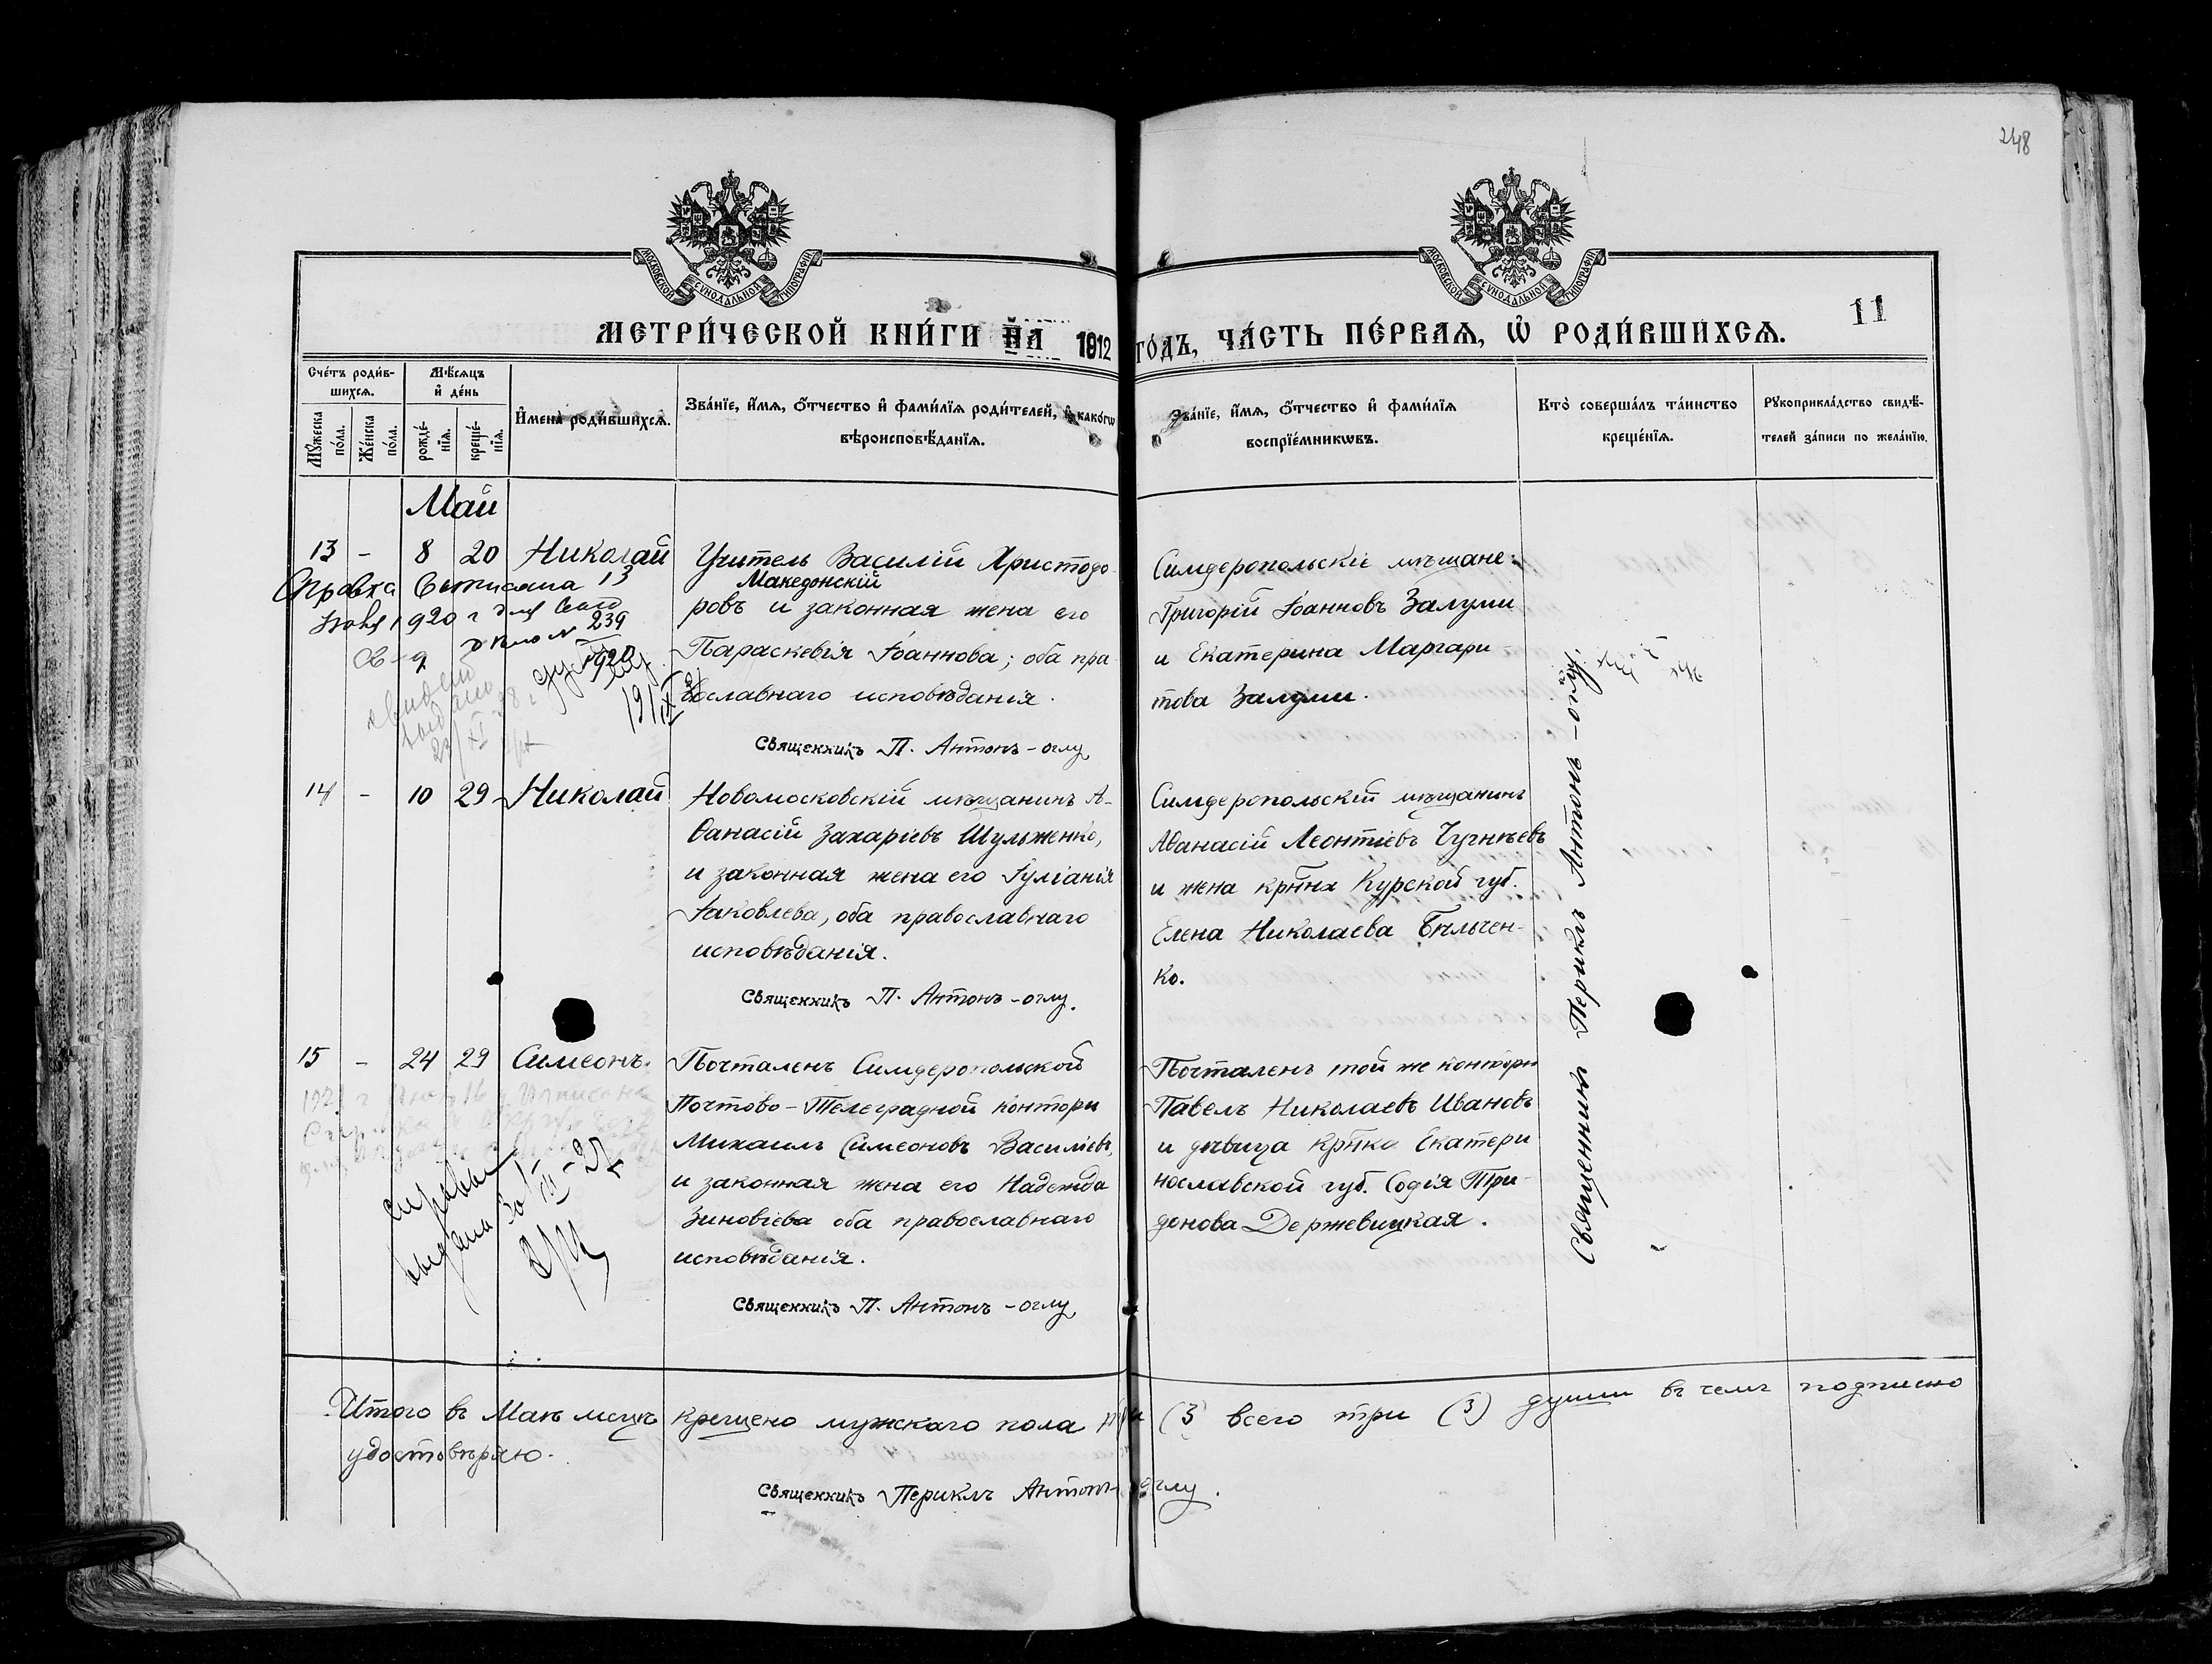 248
МОСКОВСКОЙ СѴНОДАЛЬНОЙ ТИПОГРАФІИ
МОСКОВСКОЙ СѴНОДАЛЬНОЙ ТИПОГРАФІИ
11
МЕТРИ́ЧЕСКОЙ КНИ́ГИ НА 1912 ГО́ДЪ, ЧА́СТЬ ПЕ́РВАѦ, Ѡ РОДИ́ВШИХСѦ.
Сче́тъ роди́в-
шихсѧ.
Мѣ́сѧцъ
и́ де́нь
Мꙋ́жеска
по́ла.
Же́нска
по́ла.
рожде́-
нїѧ.
креще́-
нїѧ.
И҆мена̀ роди́вшихсѧ.
Зва́нїе, и҆́мѧ, ѻ҆́тчество и҆ фами́лїѧ роди́телей, и҆ како́гѡ
вѣроисповѣ́данїѧ.
Зва́нїе, и҆́мѧ, ѻ҆́тчество и҆ фами́лїѧ
воспрїе́мникѡвъ.
Кто̀ соверша́лъ та́инство
креще́нїѧ.
Рꙋкоприкла́дство свидѣ́-
телей за́писи по жела́нїю.
Май
13 - 8 20 Николай
Справка выписана 13
1920 г для
дело № 239
1920
Учитель Василій Христодо-
Македонскій
ровъ и законная жена его
Параскевія Іоаннова; оба пра-
вославнаго исповѣданія.
Священникъ П. Антонъ-оглу
Симферопольскіе мѣщане:
Григорій Іоанновъ Залуми
и Екатерина Маргари-
това Залуми.
14 - 10 29 Николай
Новомосковскій мѣщанинъ А-
ѳанасій Захаріевъ Шульженко,
и законная жена его Іуліанія
Іаковлева, оба православнаго
исповѣданія.
Священникъ П. Антонъ-оглу.
Симферопольскій мѣщанинъ
Аѳанасій Леонтіевъ Чугнѣевъ
и жена крѣнна Курской губ.
Елена Николаева Бѣльчен-
ко.
15 - 24 29 Симеонъ.
справка
выдана 30/III-27
Почталенъ Симферопольской
Почтово-Телеграфной конторы
Михаилъ Симеоновъ Василіевъ,
и законная жена его Надежда
Зиновіева оба православнаго
исповѣданія.
Священникъ П. Антонъ-оглу
Почталенъ той же конторы
Павелъ Николаевъ Ивановъ
и дѣвица крѣнка Екатери
нославской губ. Софія Три-
фонова Держевицкая.
Священникъ Периклъ Антонъ-оглу.
Итого въ Маѣ мсцѣ крещено мужскаго пола три (3 всего три (3) души въ чемъ подписью
удостовѣряю.
Священникъ Периклъ Антонъ-оглу.